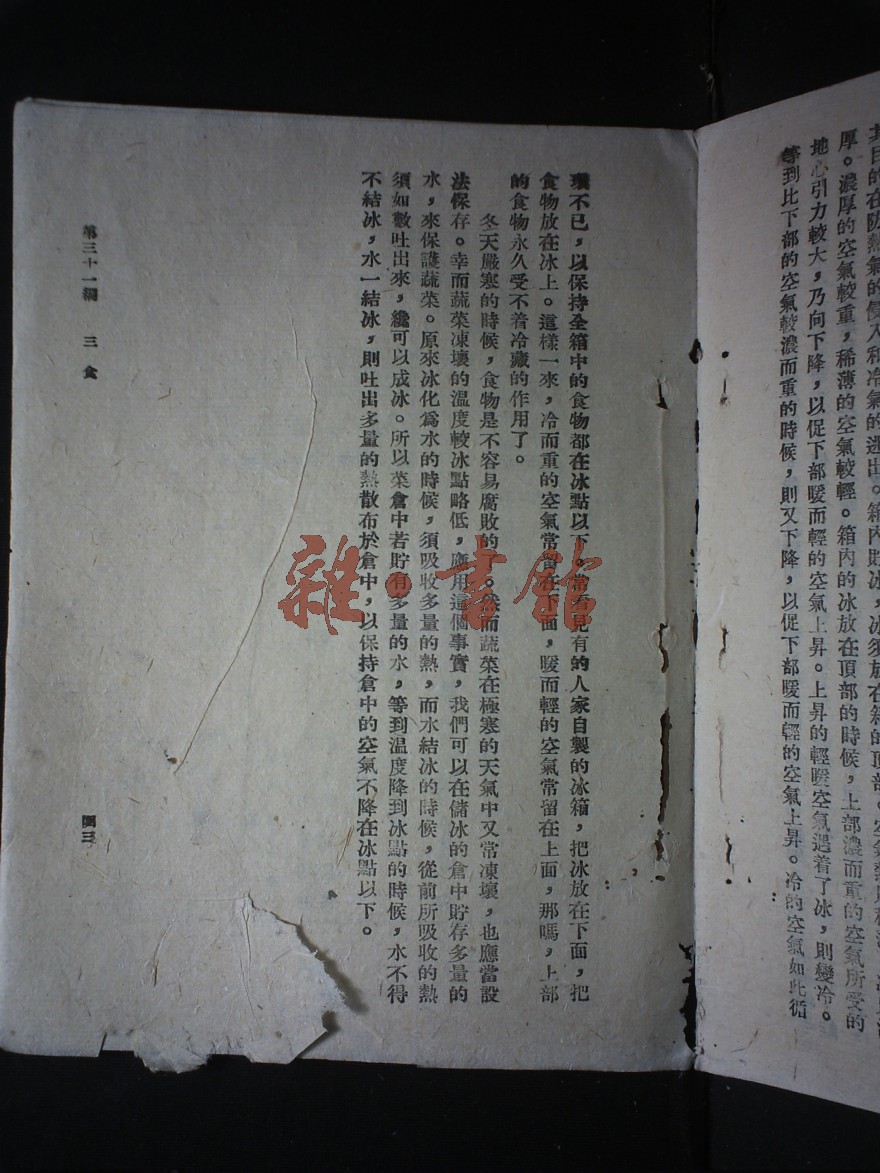 其目的在防熱氣的侵入和冷氣的逃出。箱內貯冰,冰須放在箱的頂部。空氣熱則
厚。濃厚的空氣較重,稀薄的空氣較輕。箱內的冰放在頂部的時候,上部濃而重的空氣所受的
地心引力較大,乃向下降,以促下部暖而輕的空氣上昇。上昇的輕暖空氣遇着了冰,則變冷。
等到比下部的空氣較濃而重的時候,則又下降,以促下部暖而輕的空氣上昇。冷的空氣如此循
環不已,以保持全箱中的食物都在冰點以下。常看見有的人家自製的冰箱,把冰放在下面,把
食物放在冰上。這樣一來,冷而重的空氣常留在下面,暖而輕的空氣常留在上面,那嗎,上部
的食物永久受不着冷藏的作用了。
冬天嚴寒的時候,食物是不容易腐敗的了。然而蔬菜在極寒的天氣中又常凍壞,也應當設
法保存。幸而蔬菜凍壞的溫度較冰點略低,應用這個事實,我們可以在儲冰的倉中貯存多量的
水,來保護蔬菜。原來冰化爲水的時候,須吸收多量的熱,而水結冰的時候,從前所吸收的熱
須如數吐出來,纔可以成冰。所以菜倉中若貯有多量的水,等到溫度降到冰點的時候,水不得
不結冰,水一結冰,則吐出多量的熱散布於倉中,以保持倉中的空氣不降在冰點以下。
第三十一編 三 食
四三
雜·書館